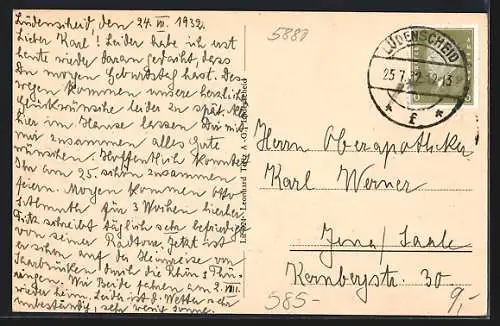 Lüdenscheid, den 24. VII. 1932.
Lieber Karl! Leider habe ich erst
heute wieder daran gedacht, dass
Du morgen Geburtstag hast. Des-
wegen kommen unsere herzlichen
Glückwünsche leider zu spät. Alle
hier im Hause lassen Dir mit
mir zusammen alles Gute
wünschen. Hoffentlich konntet
Ihr am 25. schön zusammen
feiern. Morgen kommen Otto
für 3 Wochen hierher.
schreibt täglich sehr befriedigt
von seiner Radtour. Jetzt ist
er schon auf der Heimreise von
Saarbrücken durch die Rhön u. Thü-
ringen. Wir Beide fahren am 2. VIII.
wieder heim. Leider ist d. Wetter sehr
unbeständig, sehr wenig Sonne.
5880
LÜDENSCHEID
25.7.32.12-13
* f *
Leonhard Tietz A.-G.
Herrn Oberapotheker
Karl Werner
Jena/Saale
Kernbergstr. 30
585-
9,-